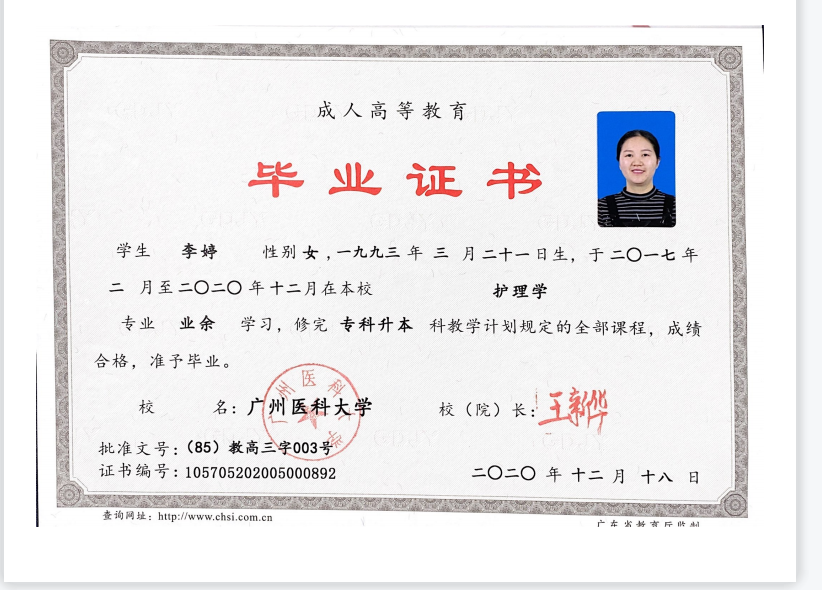 成人高等教育
毕业证书
学生 李婷 性别 女，一九九三 年 三 月 二十一 日生，于 二〇一七 年
二 月至 二〇二〇 年 十二 月在本校 护理学
专业 业余 学习，修完 专科升本 科教学计划规定的全部课程，成绩
合格，准予毕业。
校 名：广州医科大学 校（院）长：王新华
广州医科大学
批准文号：（85）教高三字003号
证书编号：105705202005000892 二〇二〇 年 十二 月 十八 日
查询网址：http://www.chsi.com.cn 广东省教育厅监制